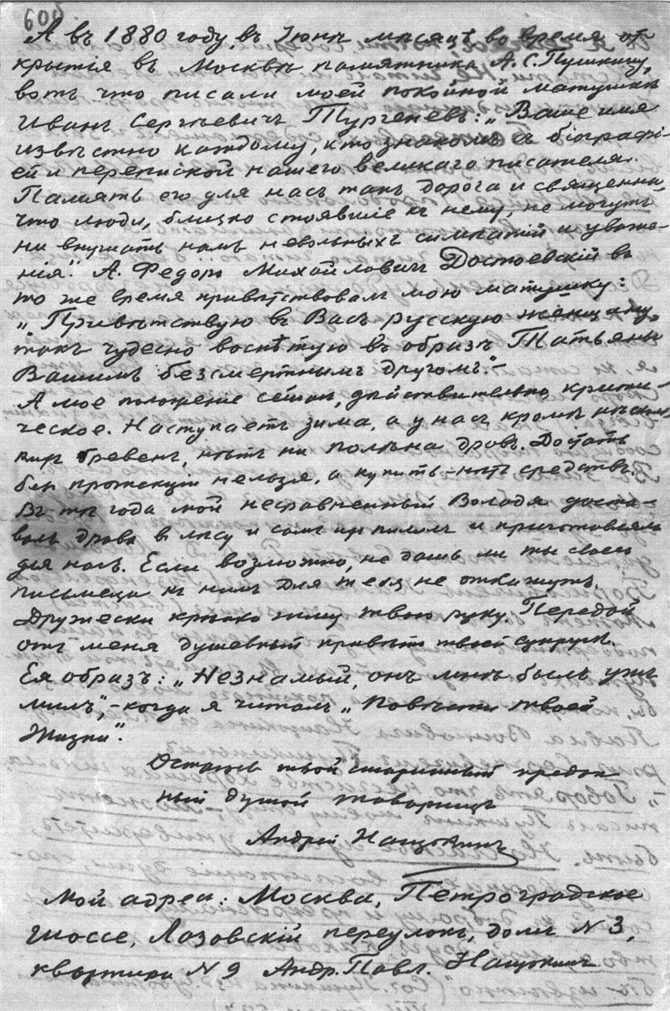 600.
А въ 1880 году, въ Iюнѣ мѣсяцѣ во время от
крытiя въ Москвѣ памятника А.С.Пушкину,
вотъ что писали моей покойной матушкѣ
Иванъ Сергѣевичъ Тургеневъ: „Ваше имя
извѣстно каждому, кто знакомъ съ бiографi-
ей и перепиской нашего великаго писателя.
Память его для насъ такъ дорога и священна,
что люди, близко стоявшiе къ нему, не могутъ
не внушать намъ невольныхъ симпатiй и уваже-
нiя". А. Федоръ Михайловичъ Достоевскiй въ
то же время привѣтствовалъ мою матушку:
„Привѣтствую въ Васъ русскую женщину,
такъ чудесно воспѣтую въ образѣ Татьяны
Вашимъ безсмертнымъ другомъ".-
А мое положенiе сейчас, дѣйствительно крити-
ческое. Наступаетъ зима, а у насъ кромѣ
бревенъ, нѣтъ ни полѣна дровъ. Достать
безъ протекцiи нельзя, а купить-нѣтъ средствъ.
Въ тѣ года мой несравненный Володя доста-
валъ дрова въ лѣсу и самъ ихъ пилилъ и приготовлялъ
для насъ. Если возможно, не дашь ли ты своего
письмеца къ нимъ для тебя не откажутъ.
Дружески крѣпко жму твою руку. Передай
отъ меня душевный привѣтъ твоей супругѣ.
Ея образъ: „Незнамый, онъ мнѣ былъ ужъ
милъ",-когда я читалъ „Повѣсти твоей
Жизни".
Остаюсь твой старинный предан-
ный душой товарищъ
Андрей Нащокинъ
Мой адрес: Москва, Петроградское
шоссе, Лазовскiй переулокъ, домъ N 3,
квартира N 9 Андр. Павл. Нащокинъ